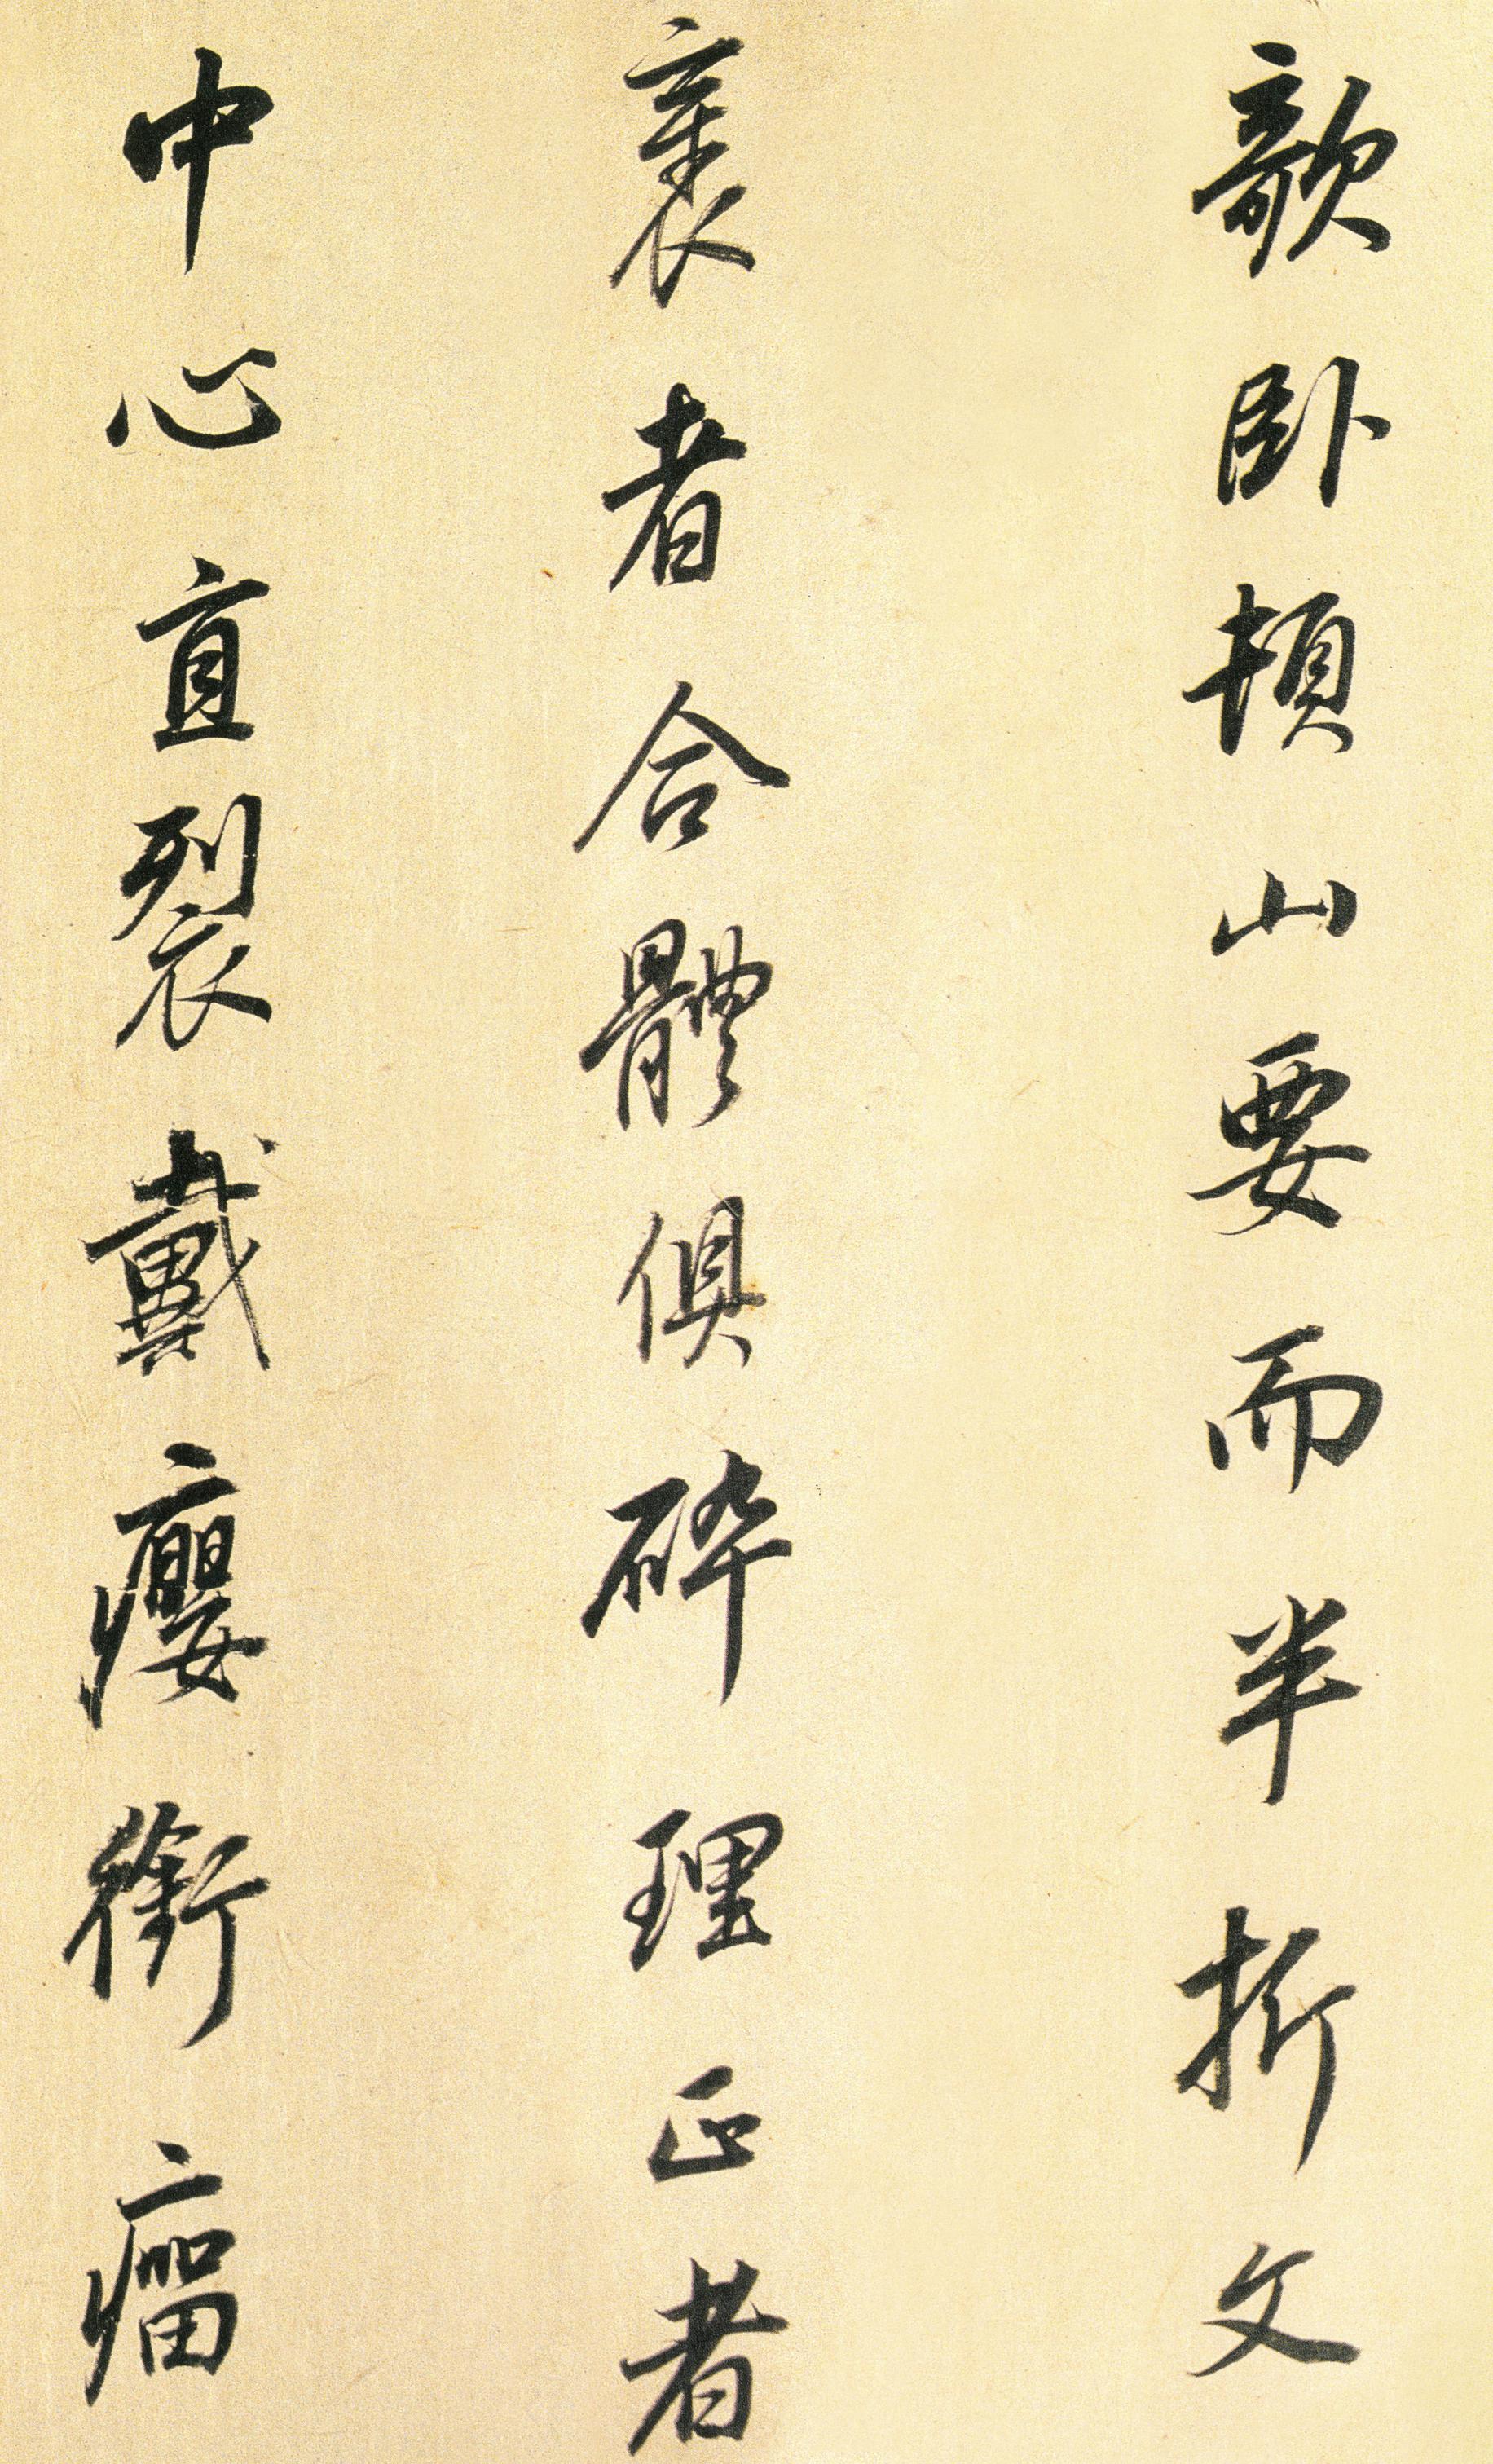 歌卧頓山要而半折文
裹者合體俱碎理正者
中心直裂戴癭銜瘤